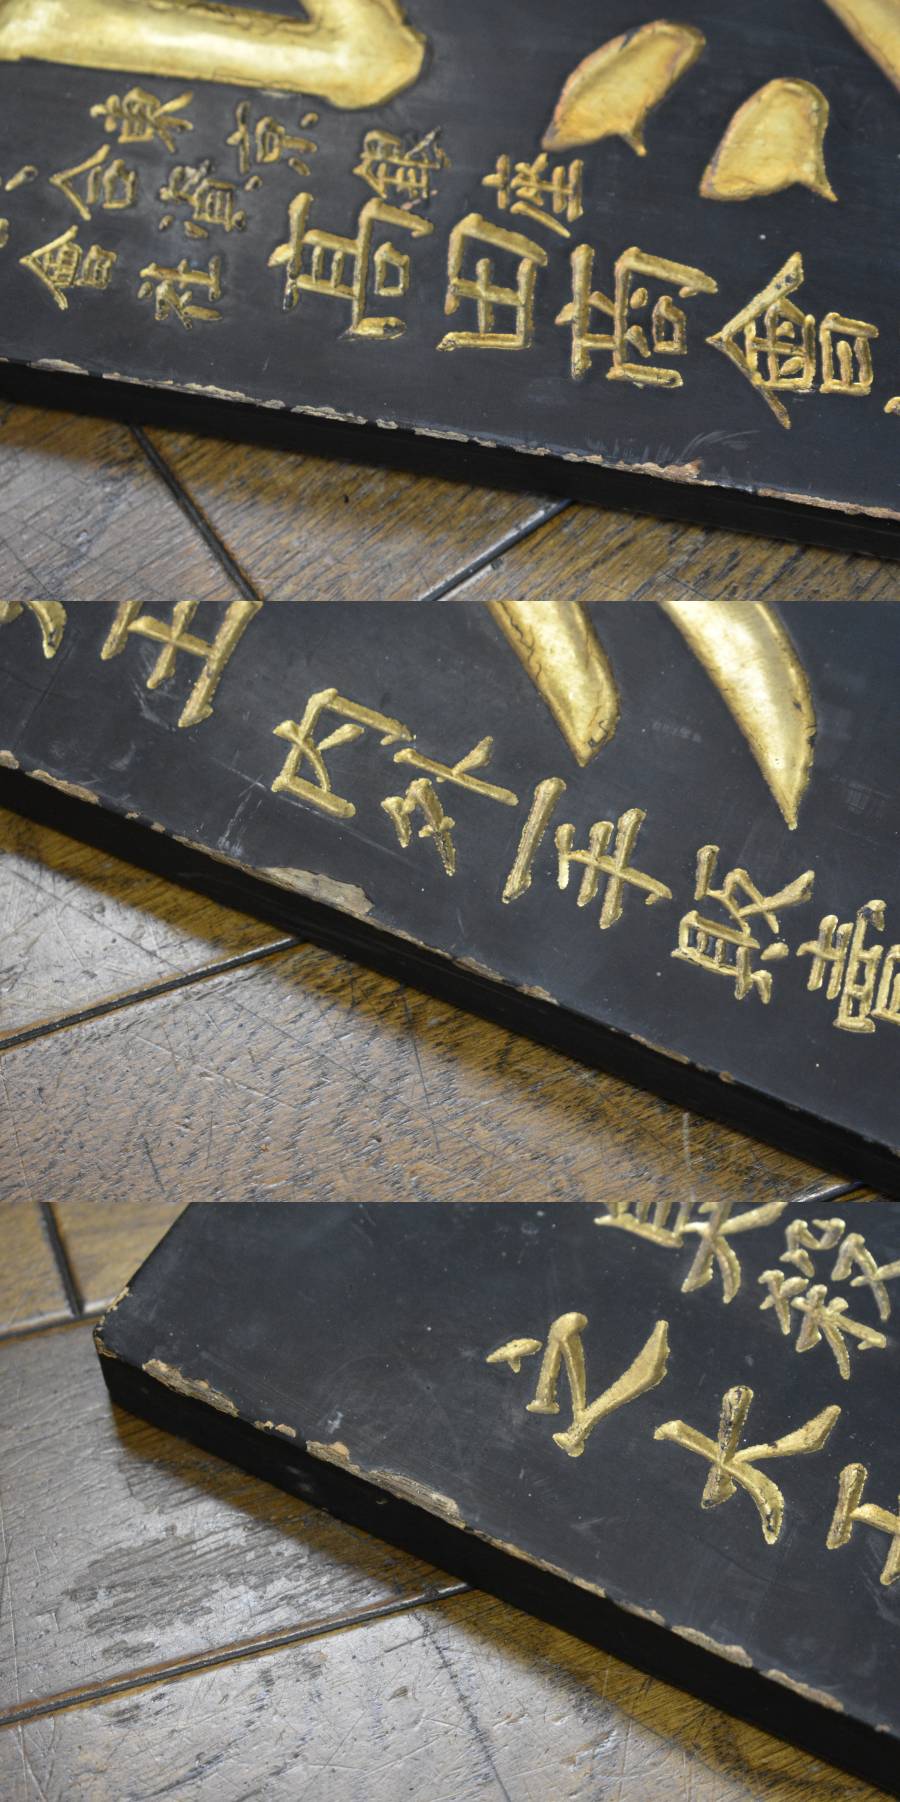 東京銀座
合資會社高田商會
内外一手販賣
殺
之大